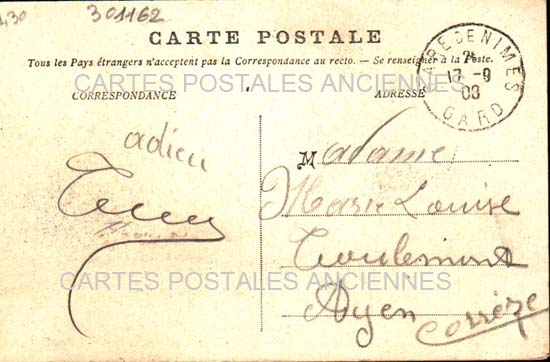 1,30
301162
CARTE POSTALE
Tous les Pays étrangers n'acceptent pas la Correspondance au recto. — Se renseigner à la Poste.
CARTES POSTALES ANCIENNES
CORRESPONDANCE
ADRESSE
GARE DE NIMES
13 -9
03
GARD
adieu
Madame
Marie Louise
Ayen Corrèze
CARTES POSTALES ANCIENNES